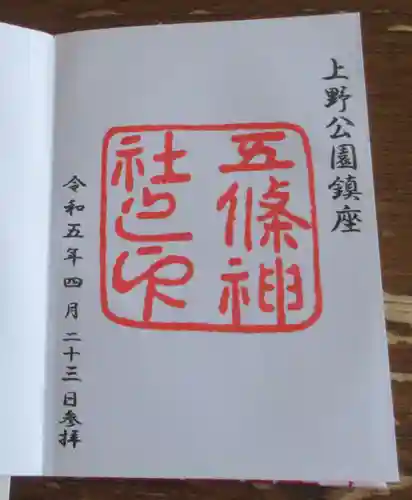 上野公園鎮座
五條神
社之印
令和五年四月二十三日参拝